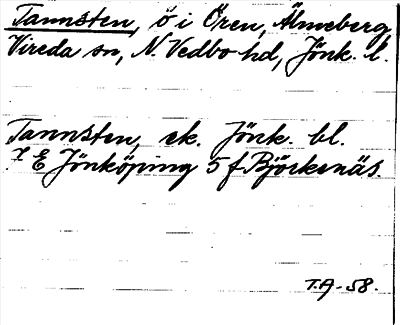 Tannsten, ö i Ören, Älmeberg,
Vireda sn, N. Vedbo hd, Jönk. l.
Tannsten, ek. Jönk. bl.
7 E Jönköping 5 f Björkenäs.
T.A-58.